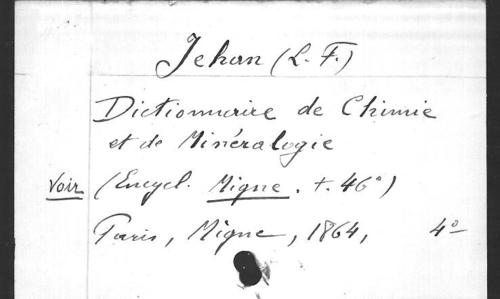 Jehan (L. F.)
Dictionnaire de Chimie
et de Minéralogie
Voir (Encycl. Migne. t. 46°)
Paris, Migne, 1864, 4°